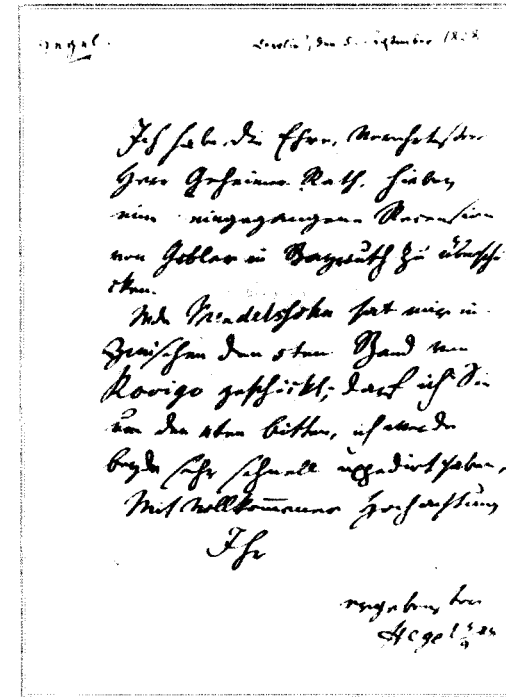 Hegel. Berlin, den 5. September 1828
Ich habe die Ehre, Verehrtester
Herr Geheimer Rath, hiebey
eine eingegangene Recension
von Gabler in Bayreuth zu überschi
cken.
Mendelssohn hat mir in
zwischen den 5ten Band von
Rovigo geschickt; darf ich Sie
um den 4ten bitten, ich werde
beyde sehr schnell expedirt haben,
Mit vollkommener Hochachtung
Ihr
ergebenster
Hegel